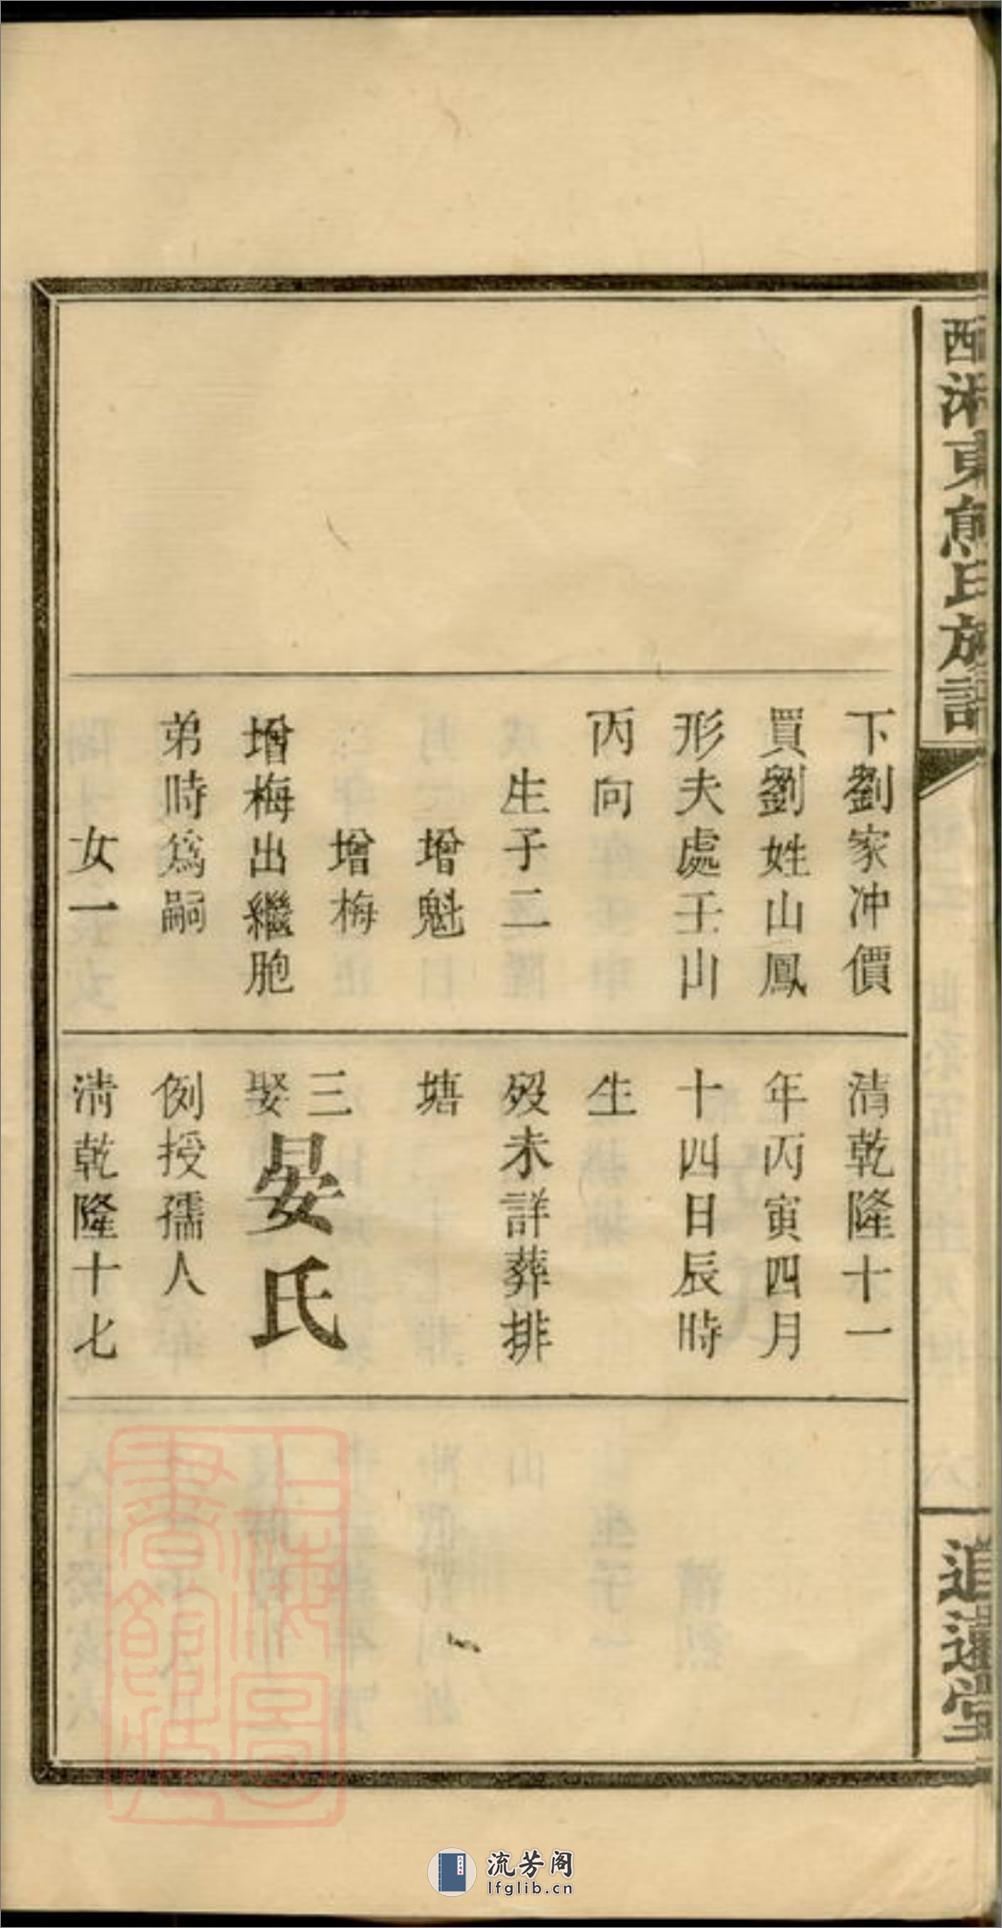 西湘東熊氏族譜
追遠堂
下劉家冲價
買劉姓山鳳
形夫處壬山
丙向
生子二
增魁
增梅
增梅出繼胞
弟時爲嗣
女一
清乾隆十一
年丙寅四月
十四日辰時
生
歿未詳葬排
塘
三娶晏氏
例授孺人
清乾隆十七
上海圖書館藏
流芳阁
lfglib.cn